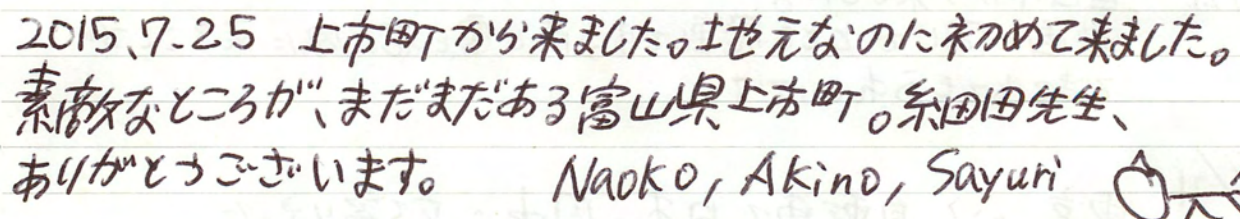 2015.7.25 上市町から来ました。地元なのに初めて来ました。
素敵なところが、まだまだある富山県上市町。細田先生、
ありがとうございます。 Naoko, Akino, Sayuri